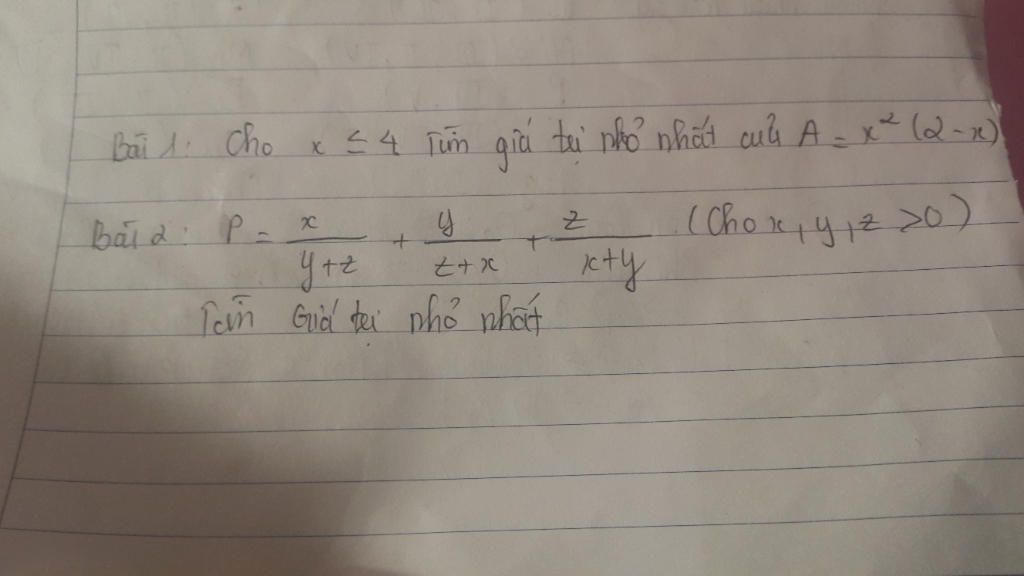 Bài 1: Cho x ≤ 4 Tìm giá trị nhỏ nhất của A = x² (2 - x)
Bài 2: P = x/(y+z) + y/(z+x) + z/(x+y) (Cho x, y, z > 0)
Tìm Giá trị nhỏ nhất